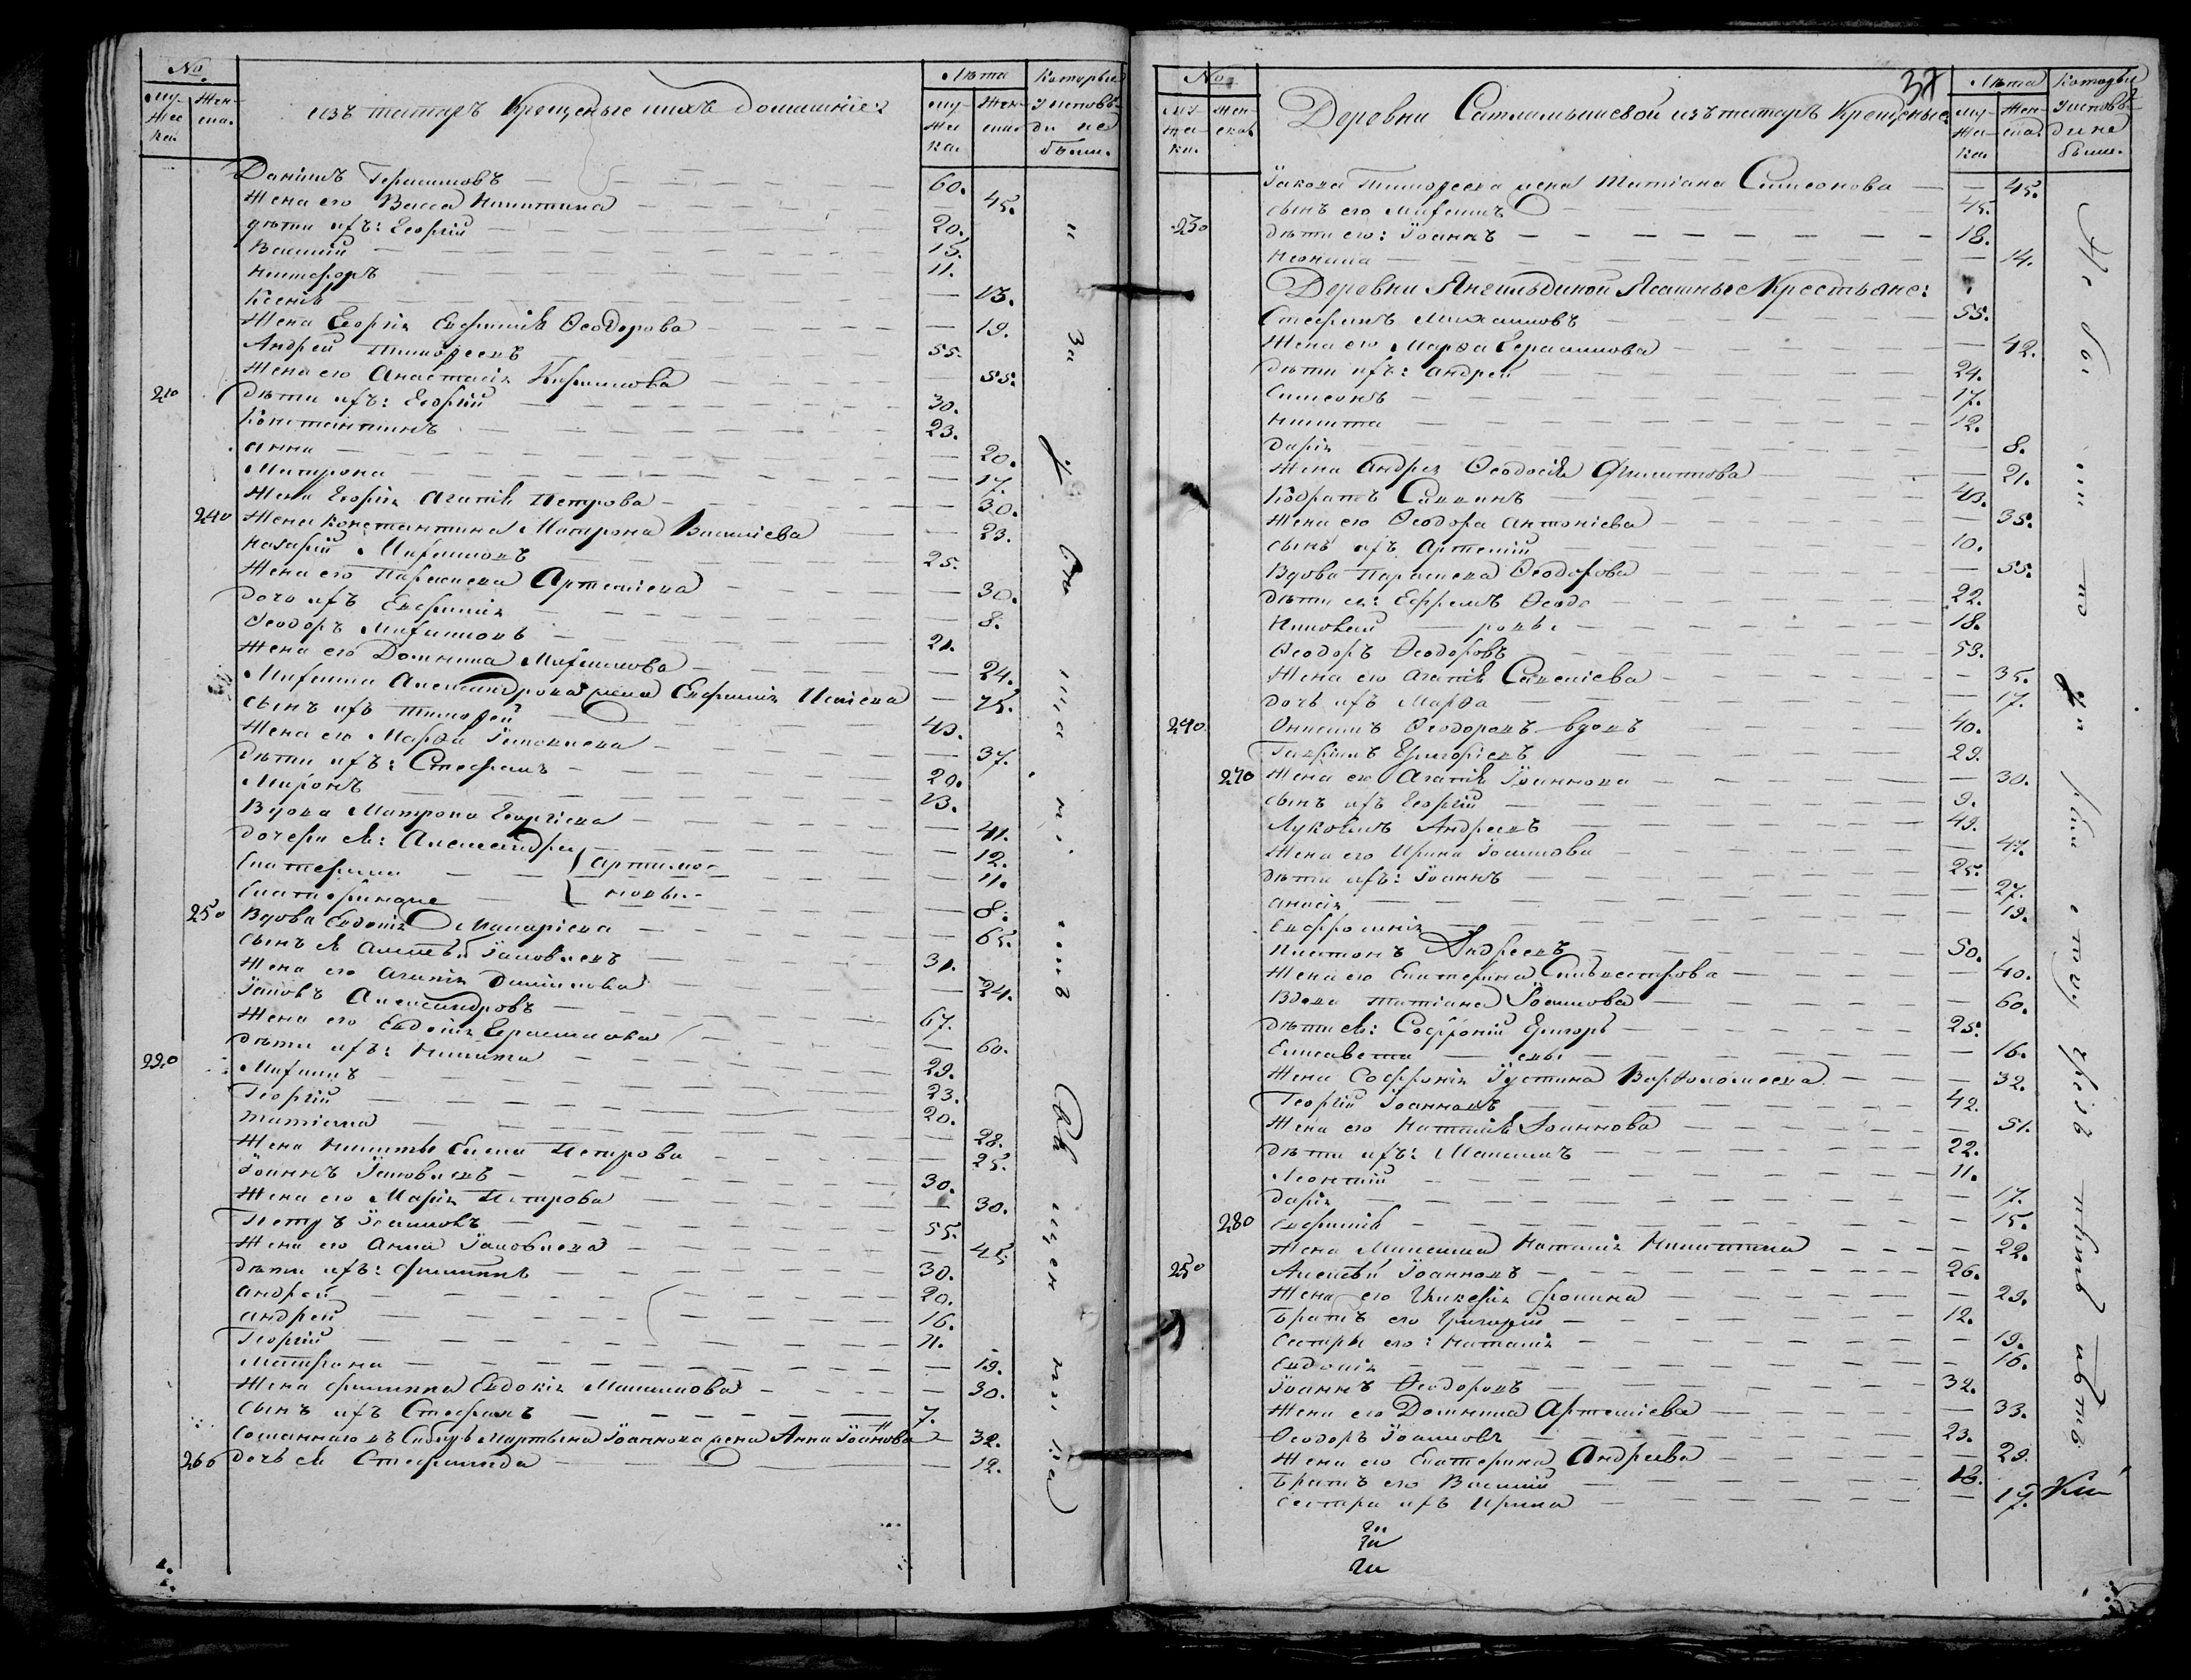 №
Му-
жес
ка.
Жен-
ска.
изъ татаръ Крещеные ихъ домашніе:
Лѣта
му-
жес
ка.
Жен-
ска.
Которые
у исповѣ-
ди не
были.
Даніилъ Герасимовъ 60.
Жена его Васса Никитина 45.
дѣти ихъ: Георгій 20.
Василій 15.
Никифоръ 11.
Ксенія 13.
Жена Георгія Евфимія Ѳеодорова 19.
Андрей Тимоѳеевъ 55.
Жена его Анастасія Кирилова 55.
210 Дѣти ихъ: Георгій 30.
Константинъ 23.
Анна 20.
Матрона 17.
Жена Георгія Агапія Петрова 30.
240 Жена Константина Матрона Василіева 23.
Назарій Михаиловъ 25.
Жена его Параскева Артеміева 30.
Дочь ихъ Евфимія 8.
Ѳеодоръ Михаиловъ 21.
Жена его Домника Михаилова 24.
Михаила Александрова жена Евфимія Исаіева 75.
Сынъ ихъ Тимоѳей 40.
Жена его Марѳа Іаковлева 37.
Дѣти ихъ: Стефанъ 20.
Миронъ 13.
Вдова Матрона Георгіева 41.
Дочери ея: Александра 12.
Екатерина 11.
250 Вдова Евдокія Макаріева 65.
Сынъ ея Алексѣй Іаковлевъ 31.
Жена его Агапія Даніилова 24.
Іаковъ Александровъ 67.
Жена его Евдокія Герасимова 60.
220 Дѣти ихъ: Никита 29.
Михаилъ 23.
Георгій 20.
Татіана 28.
Жена Никиты Елена Петрова 25.
Іоаннъ Іаковлевъ 30.
Жена его Марія Петрова 30.
Петръ Іоанновъ 55.
Жена его Анна Іаковлева 45
Дѣти ихъ: Филиппъ 30.
Андрей 20.
Андрей 16.
Георгій 11.
Матрона 19.
Жена Филиппа Евдокія Максимова 30.
Сынъ ихъ Стефанъ 7.
Сосланнаго въ Сибирь Мартына Іоаннова жена Анна Іоаннова 32.
260 Дочь ея Стефанида 12.
№
Му-
жес-
ка.
Жен-
ска.
37
Деревни Сатламышевой изъ татаръ Крещеные:
Лѣта
му-
жес-
ка.
Жен-
ска.
Которые
у исповѣ-
ди не
были.
Іакова Тимоѳеева жена Татіана Симеонова 45.
Сынъ его Михаилъ 45.
230 Дѣти его: Іоаннъ 18.
Неонила 14.
Деревни Янгильдиной Ясашные Крестьяне:
Стефанъ Михаиловъ 55.
Жена его Марѳа Герасимова 42.
Дѣти ихъ: Андрей 24.
Симеонъ 17.
Никита 12.
Дарія 8.
Жена Андрея Ѳеодосія Филиппова 21.
Кодратъ Саввинъ 43.
Жена его Ѳеодора Антоніева 35.
Сынъ ихъ Артемій 10.
Вдова Параскева Ѳеодорова 55.
Дѣти ея: Ефремъ Ѳеодо 22.
Николай ровы 18.
Ѳеодоръ Ѳеодоровъ 53.
Жена его Агапія Савеліева 35.
Дочь ихъ Марѳа 17.
240 Онисимъ Ѳеодоровъ вдовъ 40.
Гавріилъ Григоріевъ 29.
270 Жена его Агапія Іоаннова 30.
Сынъ ихъ Георгій 9.
Андреевъ 49.
Жена его Ирина Іоаннова 47.
Дѣти ихъ: Іоаннъ 25.
27.
Евфросинія 19.
Платонъ Андреевъ 50.
Жена его Екатерина Сильвестрова 40.
Вдова Татіана Іоаннова 60.
Дѣти ея: Софроній Григорь 25.
Елисавета евы 16.
Жена Софронія Іустина Варѳоломеева 32.
Георгій Іоанновъ 42.
Жена его Наталія Іоаннова 51.
Дѣти ихъ: Максимъ 22.
Леонтій 11.
Дарія 17.
280 Евфимія 15.
Жена Максима Наталія Никитина 22.
250 Алексѣй Іоанновъ 26.
Жена его Гликерія Фомина 29.
Братъ его Григорій 12.
Сестры его: Наталія 19.
Евдокія 16.
Іоаннъ Ѳеодоровъ 32.
Жена его Домника Артеміева 33.
Ѳеодоръ Іоанновъ 23.
Жена его Екатерина Андреева 29.
Братъ его Василій 18.
Сестра ихъ Ирина 17.